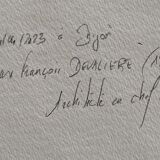 /04/2023 à Dijon
François DEVALIERE
Architecte en chef